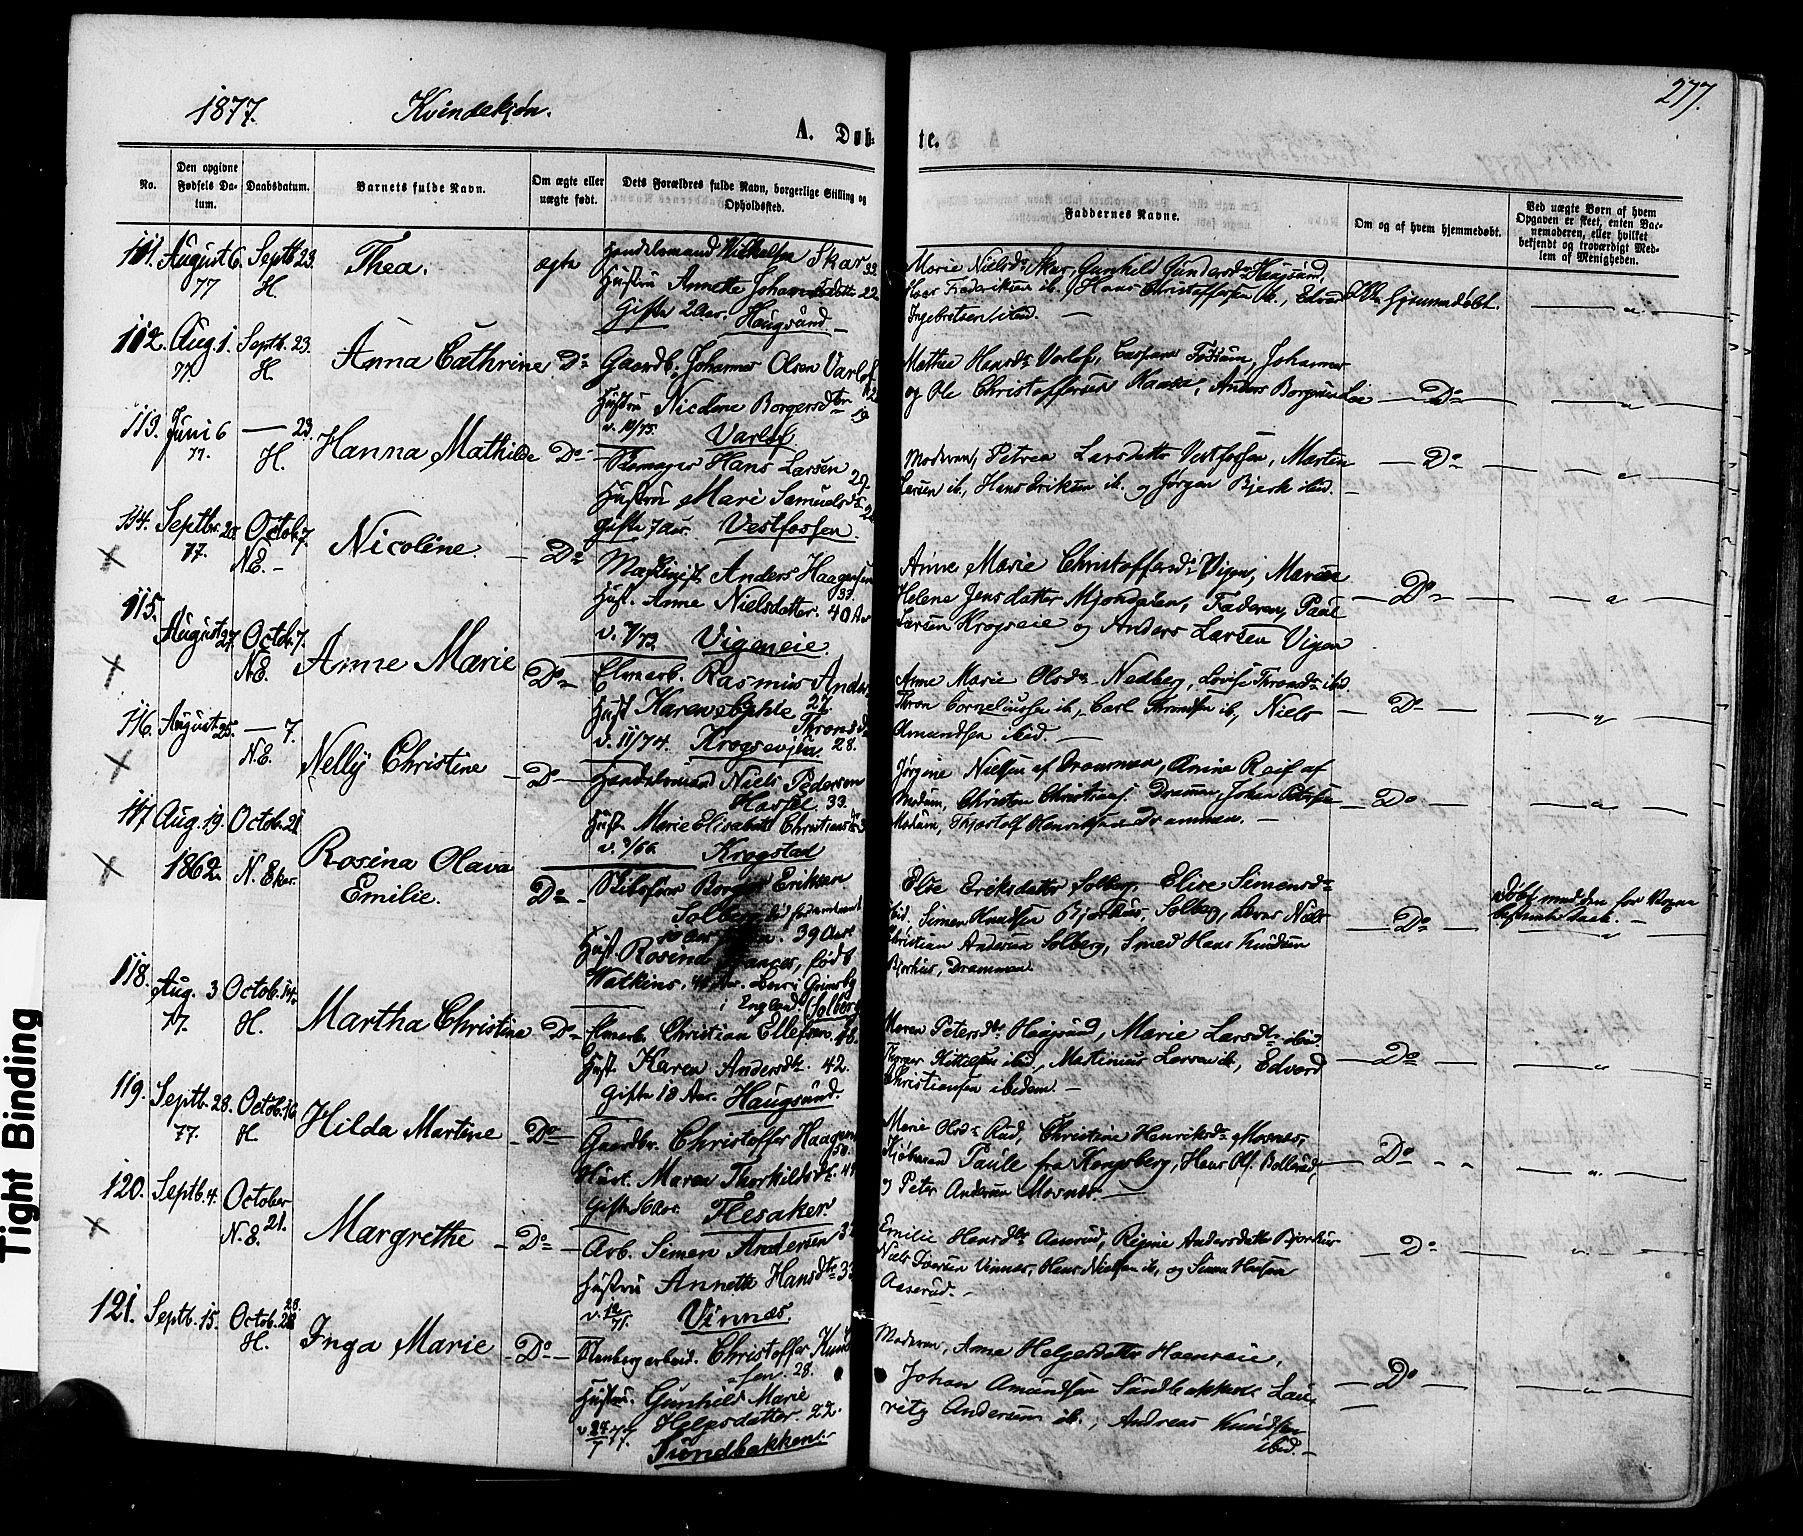 1877. Kvindekjøn.
277.
A. Døb-
te.
No.
Den opgivne Fødsels Da-
tum.
Daabsdatum.
Barnets fulde Navn.
Om ægte eller
uægte født.
Dets Forældres fulde Navn, borgerlige Stilling og
Opholdssted.
Faddernes Navne.
Om og af hvem hjemmedøbt.
Ved uægte Børn af hvem
Opgaven er skeet, enten Bar-
nemoderen, eller hvilket
bekjendt og troværdigt Med-
lem af Menigheden.
111. August 6. 77 Septb 23. H. Thea. ægte
Handelsmand Skar 33.
Hustru Annette 22
Gifte 2 Aar. Haugsund.
Marie Nielsdr Skar, Gunhild Gundersdr Haugsund,
Frederiksen ib., Hans Christoffersen ib., Edvard
Ingebretsen ibid. —
Ikke hjemmedøbt.
112. Aug. 1. 77. Septb. 23. H. Anna Cathrine Do
Gaardb. Johannes Olsen Varlof
Hustru Nicoline Borgersdtr
v. 10/75. Varlof.
Mathea Hansdr Varlof, Johannes
og Ole Christoffersen Kaasa, Anders
Do
113. Juni 6 77. — 23. H. Hanna Mathilde Do
Hans Larsen 29.
Hustru Mari Samuelsdr
gifte 7 Aar. Vestfossen.
Moderen, Petrea Larsdatter Vestfossen, Martin
Larsen ib., Hans Eriksen ib. og Jørgen Bjerk ibid. —
Do
114. Septbr. 20. 77. Octob. 7. N.E. — Nicoline. Do
Anders Haagensen 37.
Hust. Anne Nielsdatter. 40 Aar
v. 7/73. Vigeneie.
Anne Marie Christoffersdr Vigen, Maren
Helene Jensdatter Mjøndalen, Faderen, Paul
Larsen Krogseie og Anders Larsen Vigen
Do
115. August 27. Octob. 7. N.E. Anne Marie Do
Elvearb. Rasmus Anders
27
Hust Karen Sophie Thronsdr
v. 11/74. 28.
Anne Marie Olsdr Nedberg, Lovise Thronsdr ibid.
Thron Corneliussen ib., Carl Thronsen ib., Niels
Amundsen ibid. —
Do
116. August 25. — 7. N.E. Nelly Christine Do
Handelsmand Niels Pedersen
Hassel 33.
Hust. Marie Elisabeth Christiansdr
Krogstad
Jørgine Nielsen af Drammen, Amine Reif af
Modum, Christen Christians. Drammen, Johan Petersen
Modum, Thjostolf Henriksen Drammen. —
Do
117 Aug. 19. 1862. Octob. 21 N. Eker. Rosina Olava
Emilie. Do
Borger Eriksen
Solberg
39 Aar
Hust. Rosina født
Watkins. Grimsby
i England. Solberg
Else Eriksdatter Solberg, Elise Simensdr
ibid. Simen Knudsen Bjorhus, Solberg,
Christian Andersen Solberg, Smed Hans Knudsen
Bjorhus, Drammen.
Do
118. Aug. 3 77. Octob. 14. H. Martha Christine Do
Elvearb. Christian Ellefsen 48.
Hust. Karen Andersdr. 42.
Gifte 18 Aar. Haugsund.
Maren Petersdr Haugsund, Marie Larsdr ibid.
Kittelsen ibid., Martinius Larsen ib., Edvard
Christiansen ibidem. —
Do
119. Septb. 28. 77. Octob. 16 H. Hilda Martine Do
Gaardbr. Christoffer Haagens
50.
Hust. Maren Thorkildsdr.
Gifte Aar. Flesaker.
Marie Olsdr Rud, Christine Henriksdr Mosnes,
Kjøbmand Paule fra Kongsberg, Hans Ol. Bollerud,
og Peter Andersen Mosnes. —
Do
120. Septb. 4. October 21. N.E. Margrethe Do
Arb. Simen Andersen
Hustru Annette Hansdtr 33
v. 12/71. Vinnes.
Emilie Hansdtr Aaserud, Regine Andersdatter Bjorhus
Niels Iversen Vinnes, Hans Nielsen ib., og Simen Hansen
Aaserud. —
Do
121. Septb. 15. Octob. 28. H. Inga Marie Do
Christoffer Knud-
sen. 28.
Hustru. Gunhild Marie
Helgesdatter. 22.
v 24/7 77. Sundbakken.
Moderen, Anne Helgesdatter Hoenseie,
Johan Amundsen Sundbakken, Lau-
ritz Andersen ib., Andreas Knudsen
ibid. —
Do
Tight Binding